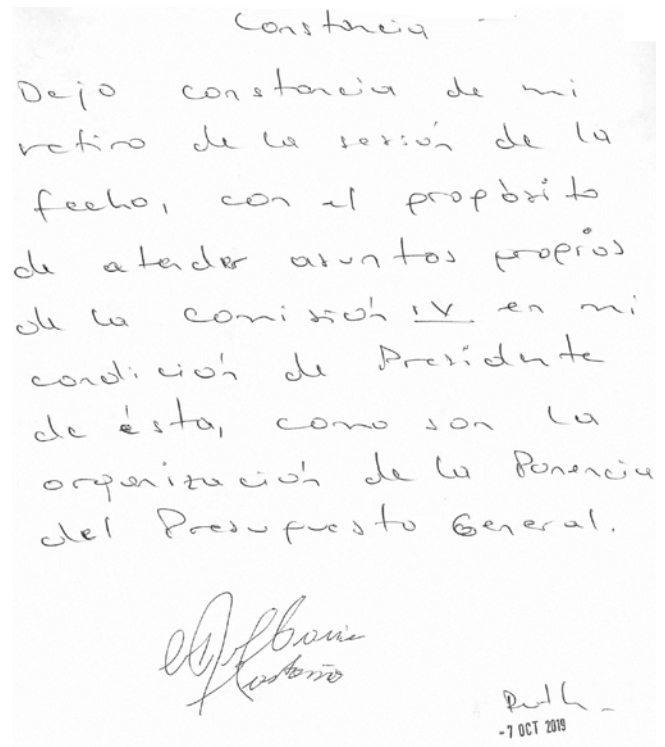 Constancia
Dejo constancia de mi
retiro de la sesión de la
fecha, con el propósito
de atender asuntos propios
de la comisión IV en mi
condición de Presidente
de ésta, como son la
organización de la Ponencia
del Presupuesto General.
Castaño
Ruth
-7 OCT 2019